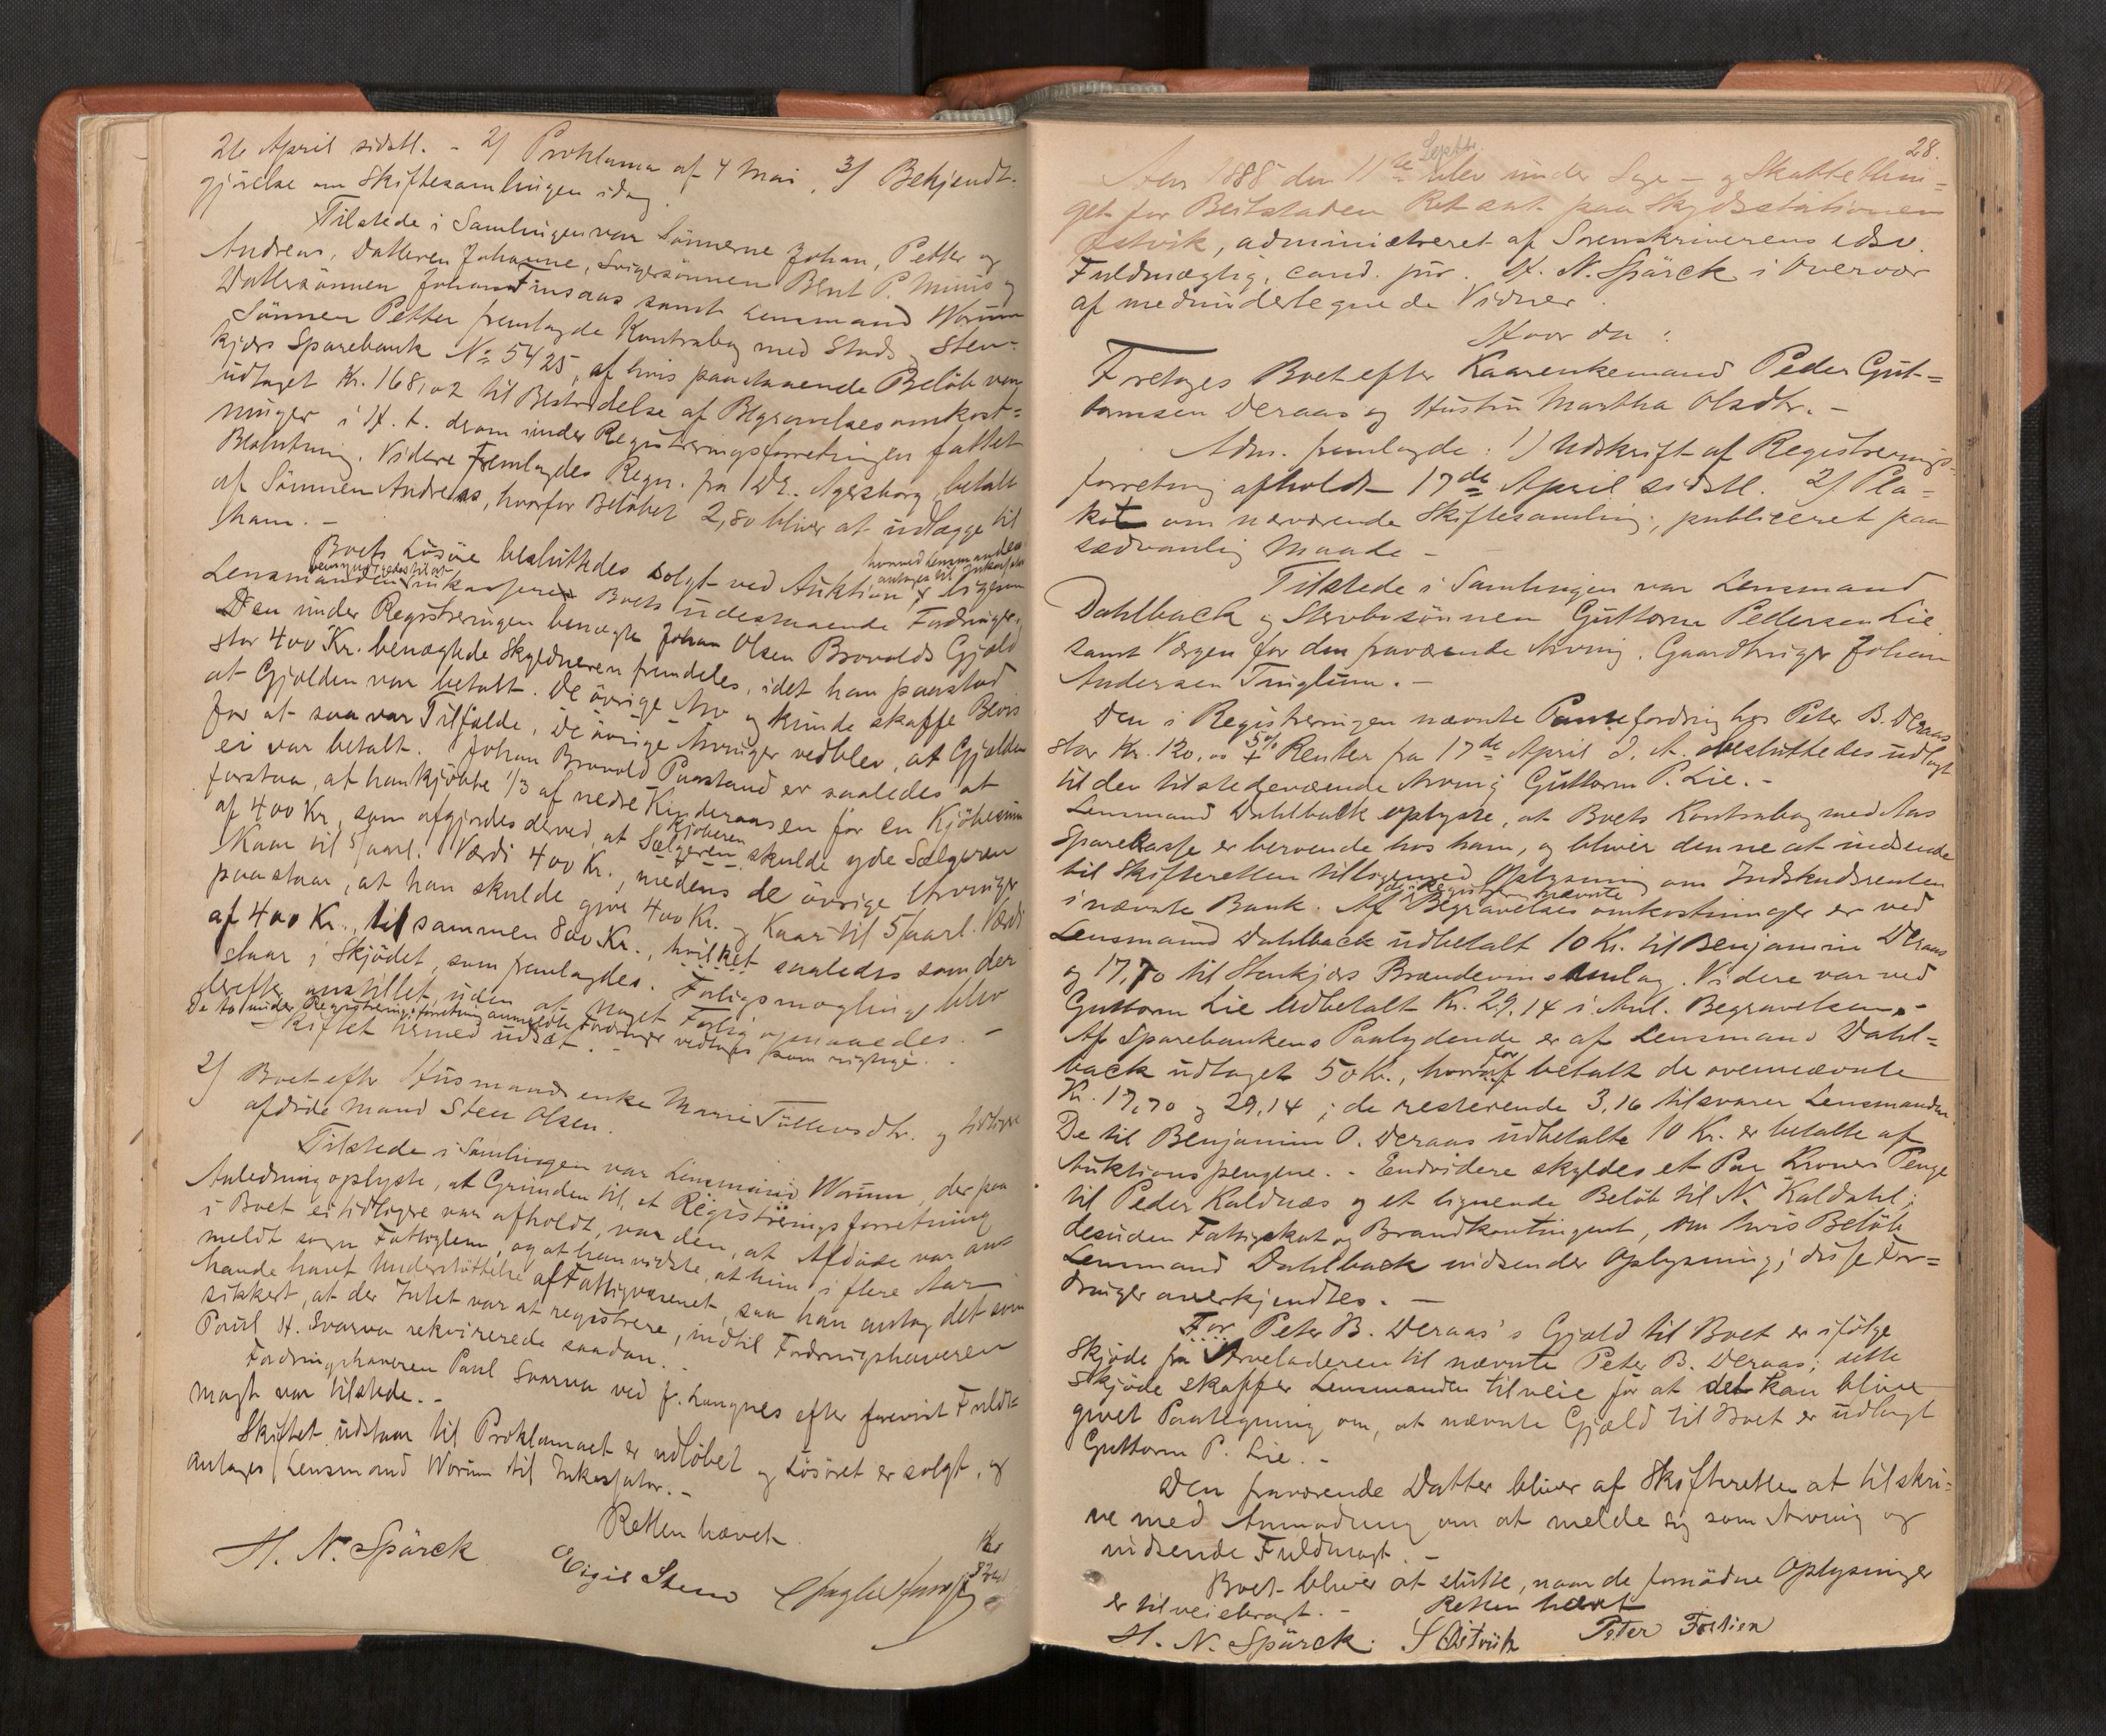 26 April sidstl. - 2/ Proklama af 4 Mai, 3/ Bekjendt-
gjörelse om Skiftesamlingen idag.
Tilstede i Samlingen var Sönnerne Johan, Petter og
Andreas, Datteren Johanne, Svigersönnen Bent P. Minis og
Dattersönnen Johan Finsaas samt Lensmand Worum
Sönnen Petter fremlagde Kontrabog med Stods og Sten-
kjærs Sparebank No 5425, af hvis paastaaende Beløb var
udtaget Kr. 168,02 til Bestridelse af Begravelsesomkost=
ninger i H. t. derom under Registreringsforretningen fattet
Beslutning. Videre fremlagdes Regn. fra Dr. Agersborg, betalt
af Sönnen Andreas, hvorfor Belöbet 2,80 bliver at udlægge til
ham. -
Boets Lösöre besluttedes solgt ved Auktion, hvorved Lensmanden
antages til Inkassator ligesom
Lensmanden bemyndigedes til at inkassere Boets udestaaende Fordringer.
Den under Registreringen benægte Johan Olsen Brovolds Gjæld
stor 400 Kr. benægtede Skyldneren fremdeles, idet han paastod
at Gjælden var betalt. De övrige Arv og kunde skaffe Bevis
for at saa var Tilfælde, de övrige Arvinger vedblev, at Gjælden
ei var betalt. Johan Brovold Paastand er saaledes at
forstaa, at han kjöbte 1/3 af nedre Kinderaasen for en Kjöbesum
af 400 Kr, som afgjordes derved, at Sælgeren Kjöberen skulde yde Sælgeren
Kaar til 5/aarl. Værdi 400 Kr., medens de övrige Arvinger
paastaar, at han skulde give 400 Kr. og Kaar til 5/aarl. Værdi
af 400 Kr., tilsammen 800 Kr., hvilket saaledes som der
staar i Skjödet, som fremlagdes. Forligsmægling blev
derefter anstillet, uden at noget Forlig opnaaedes. -
De to under Registreringsforretning anmeldte Fordringer vedtoges som rigtige.
Skiftet hermed udsat. -
2/ Boet efter Husmandsenke Marie Tollevsdtr. og tidligere
afdöde Mand Sten Olsen.
Tilstede i Samlingen var Lensmand Worum, der paa
Anledning oplyste, at Grunden til, at Registreringsforretning
i Boet ei tidligere var afholdt, var den, at Afdöde var an-
meldt som Fattiglem, og at han vidste, at hun i flere Aar
havde havt Understöttelse af Fattigvæsenet, saa han antog det som
sikkert, at der Intet var at registrere, indtil Fordringshaveren
Paul H. Svarva rekvirerede saadan. -
Fordringshaveren Paul Svarva ved J. Langnes efter forevist Fuldt=
magt var tilstede. -
Skiftet udstaar til Proklamaet er udlöbet og Lösöret er solgt, og
antages Lensmand Worum til Inkassator. -
Retten hævet
H. N. Spärck Eigil Steno
28.
Aar 1888 den 11te Septbr. blev under Sage- og Skattethin=
get for Beitstaden Ret sat paa Skydsstationen
Östvik, administreret af Sorenskriverens edsv.
Fuldmægtig, cand. jur. H. N. Spärck i Overvær
af medundertegnede Vidner.
Hvor da:
Foretoges Boet efter Kaarenkemand Peder Gut=
tormsen Deraas og Hustru Martha Olsdtr. -
Adm. fremlagde: 1) Udskrift af Registrerings-
forretning afholdt 17de April sidstl. 2/ Pla=
kat om nærværende Skiftesamling, publiceret paa
sædvanlig Maade -
Tilstede i Samlingen var Lensmand
Dahlback og Stervbosönnen Guttorm Pedersen Lie
samt Værgen for den fraværende Arving, Gaardbruger Johan
Andersen Tuiglum. -
Den i Registreringen nævnte Pantefordring hos Peter B. Deraas
stor Kr. 120,00 + 5% Renter fra 17de April d. A. besluttedes udlagt
til den tilstedeværende Arving Guttorm P. Lie. -
Lensmand Dahlback oplyste, at Boets Kontrabog med Aas
Sparekasse er beroende hos ham, og bliver denne at indsende
til Skifteretten tilligemed Oplysning om Indskudsrenten
i nævnte Bank. Af de i Registr. nævnte Begravelsesomkostninger er ved
Lensmand Dahlback udbetalt 10 Kr. til Benjamin Deraas
og 17,70 til Stenkjærs Brændevinssamlag. Videre var ved
Guttorm Lie udbetalt Kr. 29,14 i Anl. Begravelsen. -
Af Sparebankens Paalydende er af Lensmand Dahl=
back udtaget 50 Kr., hvorfor betalt de ovennævnte
Kr. 17,70 og 29,14; de resterende 3,16 tilsvarer Lensmanden
De til Benjamin O. Deraas udbetalte 10 Kr. er betalte af
Auktionspengene. - Endvidere skyldes et Par Kroners Penge
til Peder Kaldnæs og et lignende Belöb til N. Kaldahl;
desuden Fattigskat og Brandkontingent, om hvis Belöb
Lensmand Dahlback indsender Oplysning; disse For=
dringer anerkjendtes. -
For Peter B. Deraas's Gjæld til Boet er ifölge
Skjöde fra Arveladeren til nævnte Peter B. Deraas; dette
Skjöde skaffer Lensmanden tilveie for at det kan blive
givet Paategning om, at nævnte Gjæld til Boet er udlagt
Guttorm P. Lie. -
Den fraværende Datter bliver af Skifteretten at tilskri=
ve med Anmodning om at melde sig som Arving og
indsende Fuldmagt. -
Boet bliver at slutte, naar de fornödne Oplysninger
er tilveiebragt. - Retten hævet
H. N. Spärck. S Östvik Peter Fossien